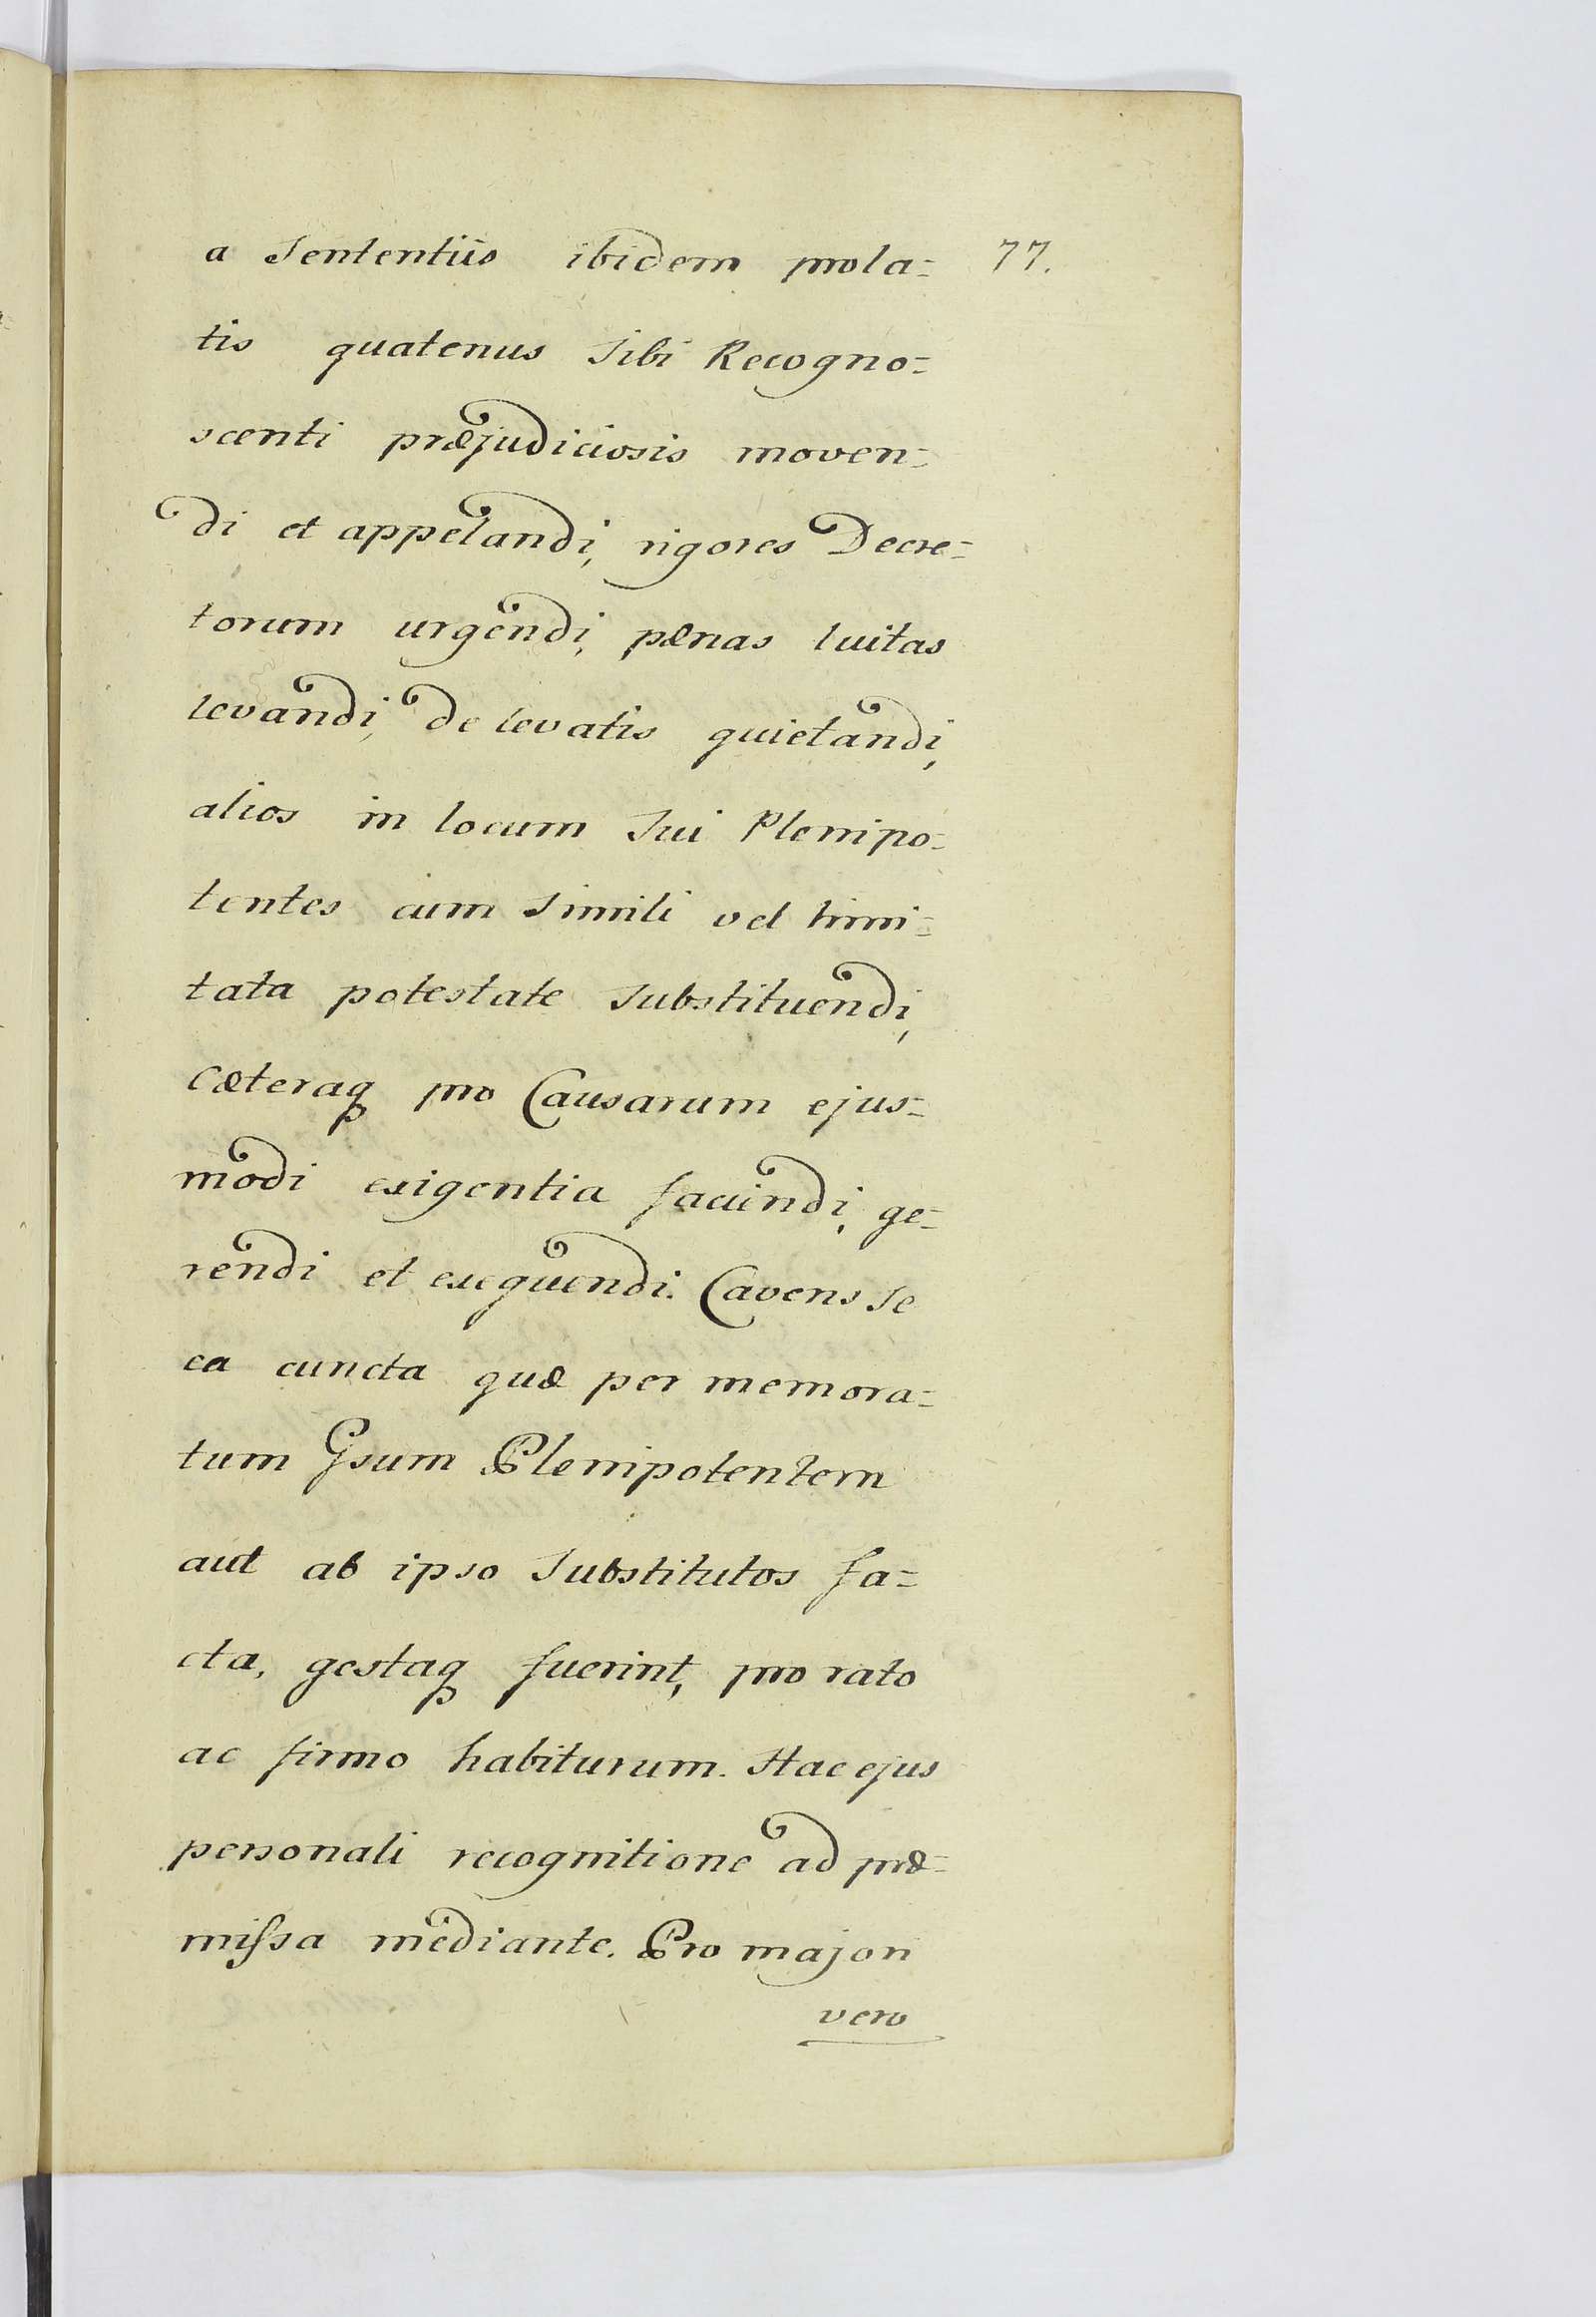 a Sententiis ibidem prola= 77.
tis quatenus Sibi Recogno=
scenti præjudiciosis moven=
di et appelandi, rigores Decre=
torum urgendi, pænas luitas
levandi, de levatis quietandi,
alios in locum Sui Plenipo=
tentes cum Simili vel limi=
tata potestate Substituendi,
Cæteraq pro Causarum ejus=
modi exigentia faciendi, ge=
rendi et exequendi. Cavens se
ea cuncta quæ per memora=
tum Gsum Plenipotentem
aut ab ipso Substitutos fa=
cta, gestaq fuerint, pro rato
ac firmo habiturum. Hac ejus
personali recognitione ad præ=
missa mediante. Pro majori
vero